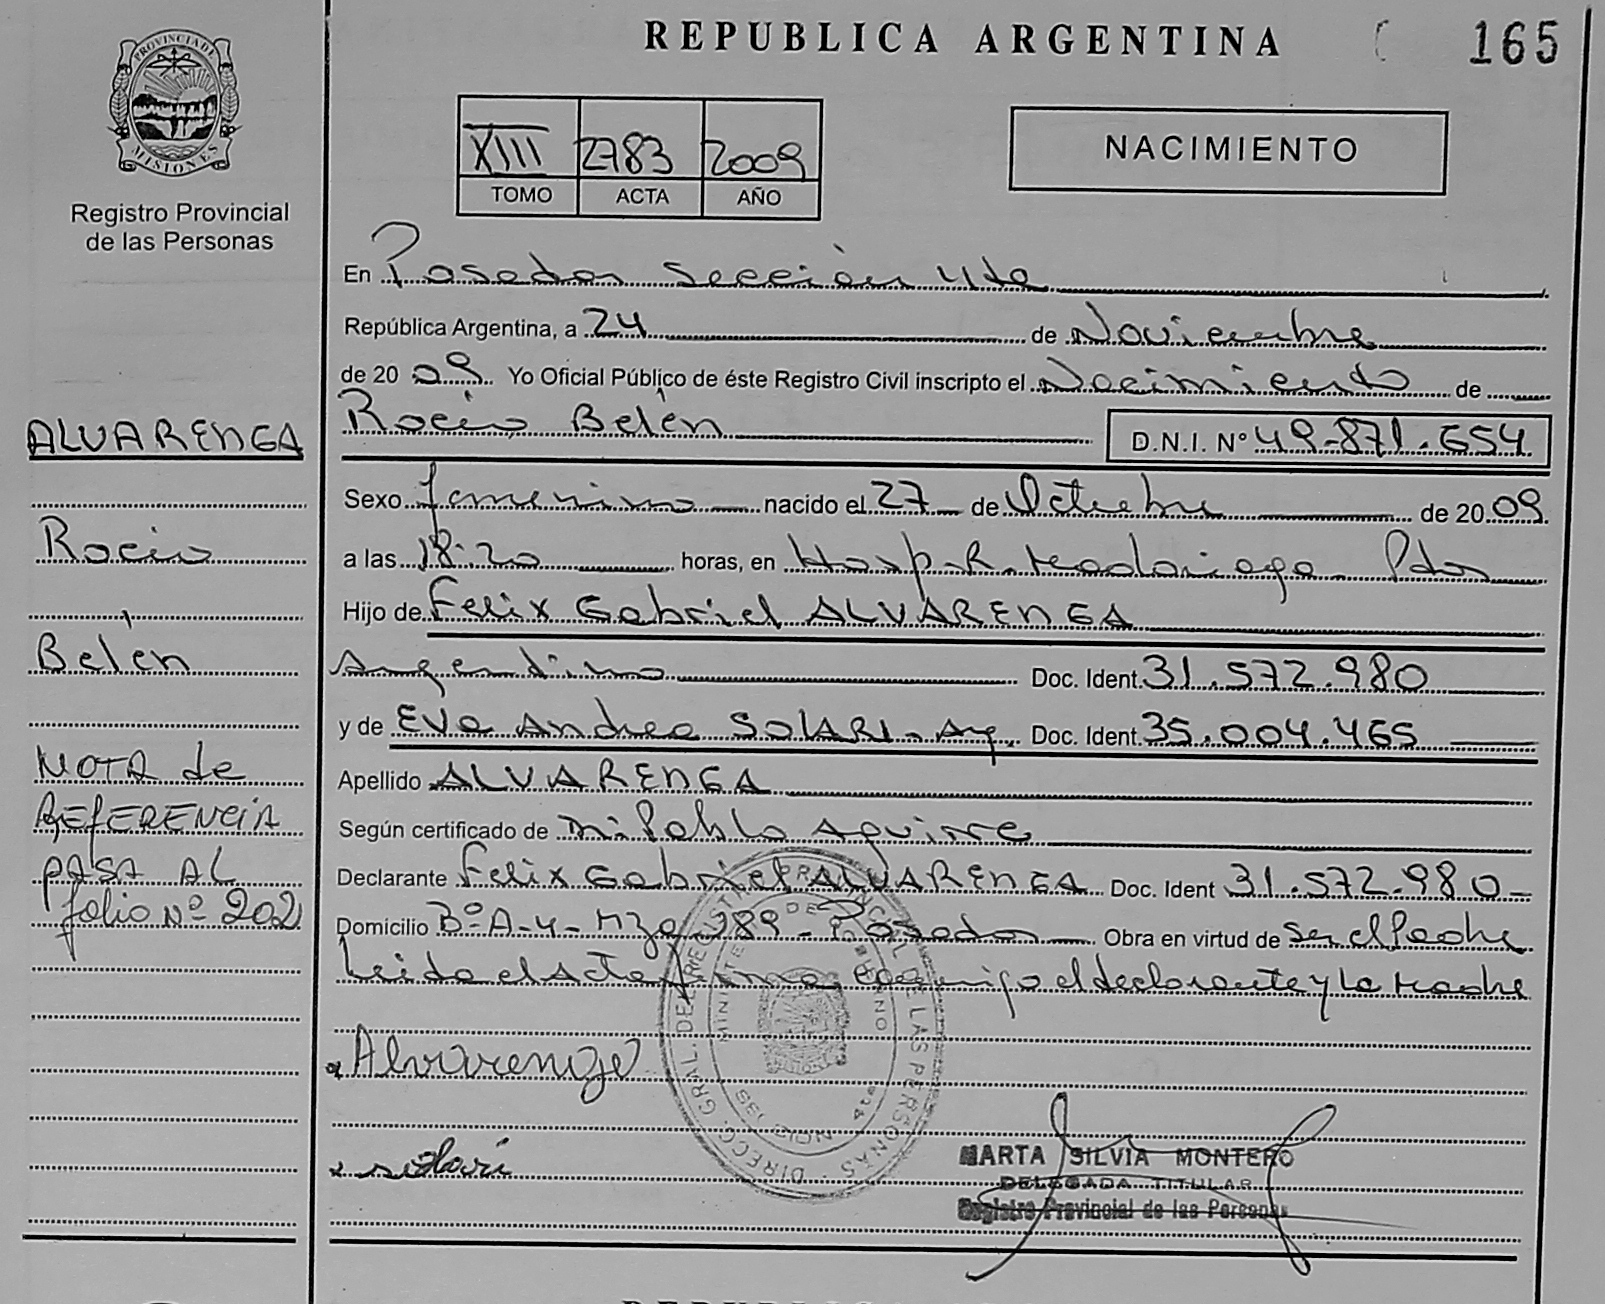 REPUBLICA ARGENTINA 165
PROVINCIA DE
MISIONES
Registro Provincial
de las Personas
XIII 2783 2009
TOMO ACTA AÑO
NACIMIENTO
En Posadas Sección 4ta
República Argentina, a 24 de Noviembre
de 20 09 Yo Oficial Público de éste Registro Civil inscripto el Nacimiento de
Rocio Belén D.N.I. Nº 49-871.654
Sexo femenino nacido el 27 de Octubre de 20 09
a las 18:20 horas, en Hosp. R. Madariaga Pdas
Hijo de Felix Gabriel ALVARENGA
Argentino Doc. Ident. 31.572.980
y de Eva Andrea SOLARI - Arg. Doc. Ident. 35.004.465
Apellido ALVARENGA
Según certificado de Pablo Aguirre
Declarante Felix Gabriel ALVARENGA Doc. Ident 31.572.980-
Domicilio Bº A-4- Mza 189 - Posadas Obra en virtud de ser el Padre
Leida el Acta firma conmigo el declarante y la Madre
Alvarenga
solari
MARTA SILVIA MONTERO
DELEGADA TITULAR
Registro Provincial de las Personas
ALVARENGA
Rocio
Belén
NOTA de
REFERENCIA
PASA AL
folio Nº 202
DIRECC. GRAL. DEL REGISTRO PROVINCIAL DE LAS PERSONAS
DE GOBIERNO